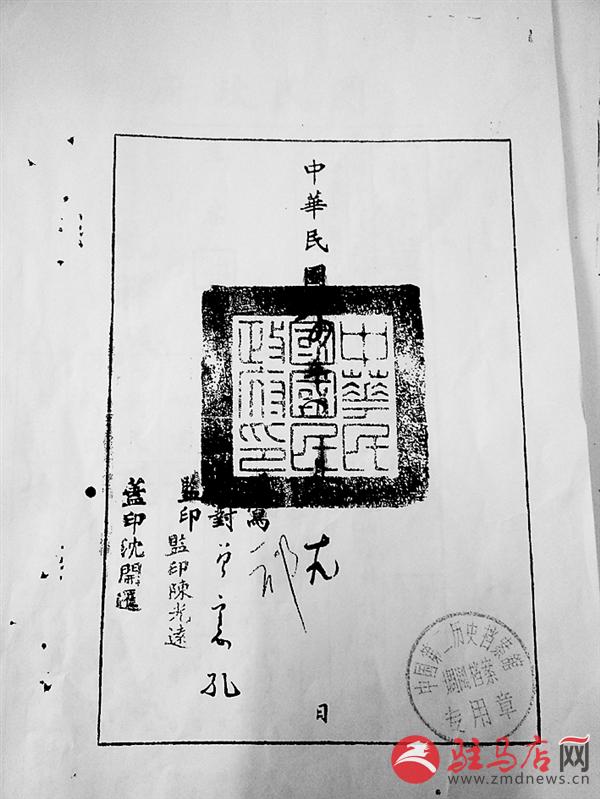 中華民國
日
中華民
國國民
政府印
寫
對
監印
監印陳光遠
蓋印沈開
中国第二历史档案馆
档案
专用章
驻马店网
www.zmdnews.cn